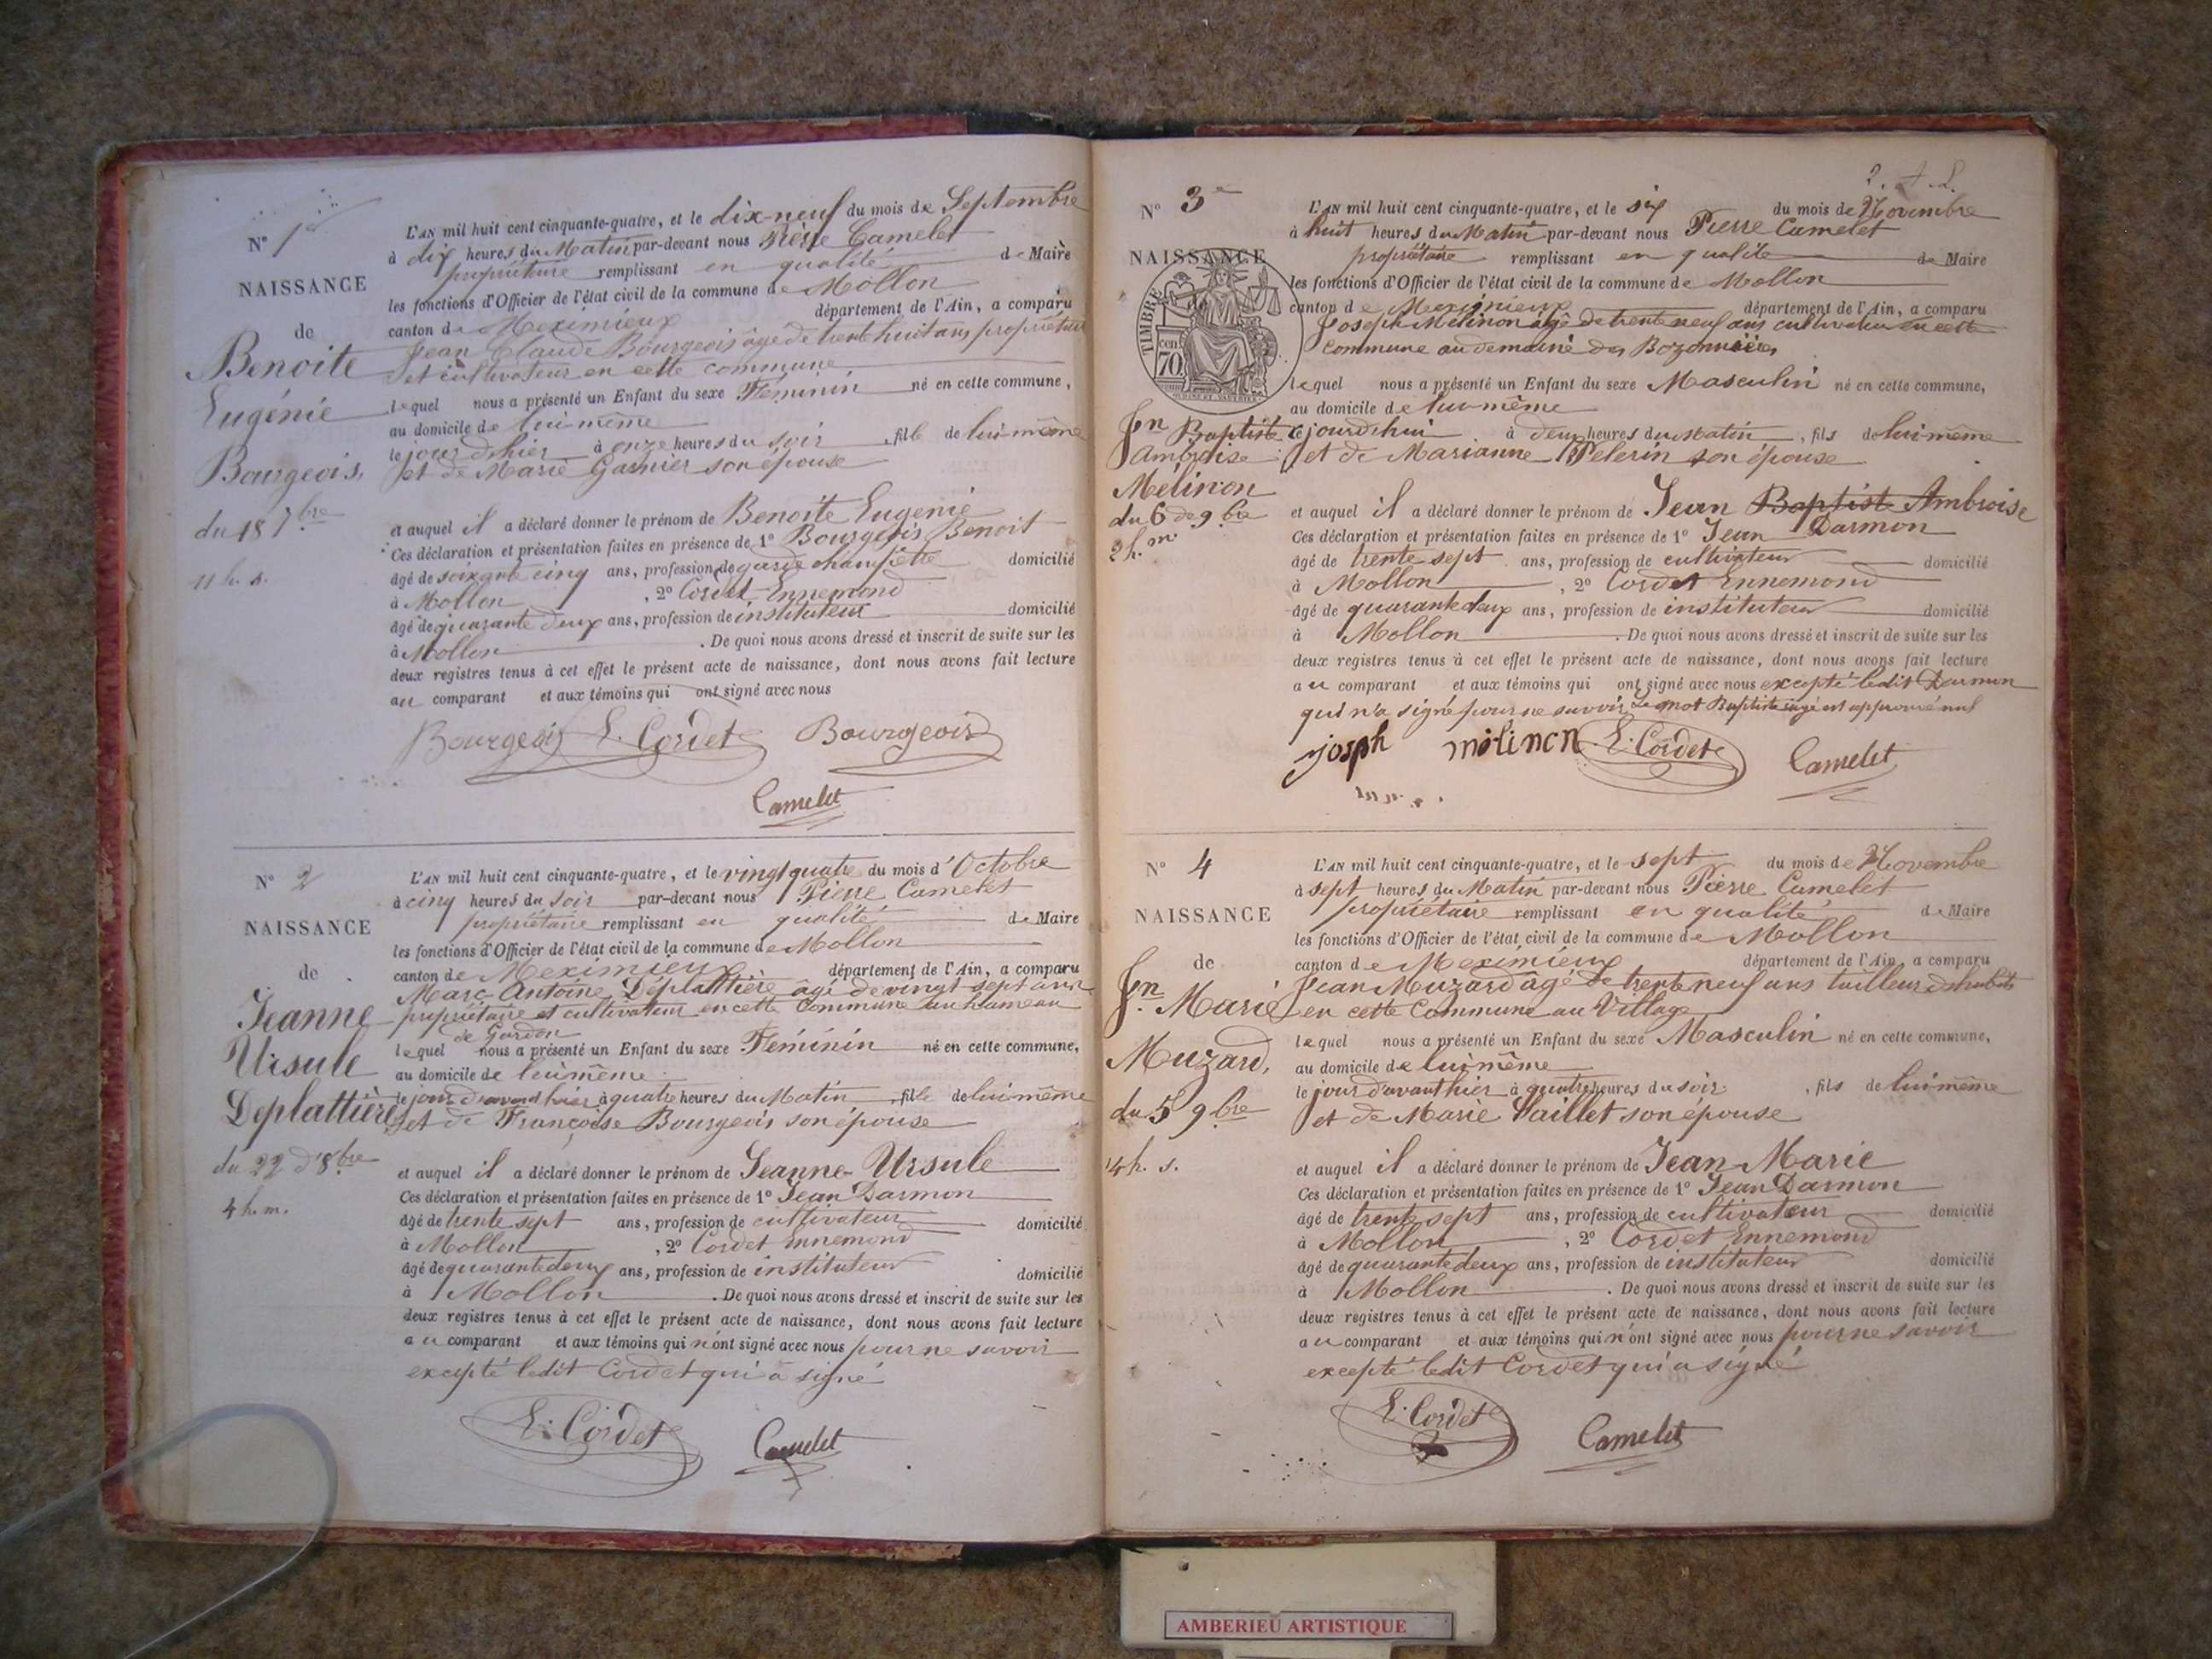 N° 1er
NAISSANCE
de
Benoite
Eugénie
Bourgeois,
du 18 7.bre
11 h. s.
L'AN mil huit cent cinquante-quatre, et le dix-neuf du mois de Septembre
à dix heures du Matin par-devant nous Pierre Camelet
propriétaire remplissant en qualité de Maire
les fonctions d'Officier de l'état civil de la commune de Mollon
canton de Meximieux département de l'Ain, a comparu
Jean Claude Bourgeois âgé de trente huit ans propriétaire
et cultivateur en cette commune
lequel nous a présenté un Enfant du sexe Féminin né en cette commune,
au domicile de lui-même
le jour d'hier à onze heures du soir, fille de lui-même
et de Marie Garnier son épouse
et auquel il a déclaré donner le prénom de Benoite Eugénie
Ces déclaration et présentation faites en présence de 1° Bourgeois Benoit
âgé de soixante cinq ans, profession de garde champêtre domicilié
à Mollon, 2° Cordet Ennemond
âgé de quarante deux ans, profession de instituteur domicilié
à Mollon. De quoi nous avons dressé et inscrit de suite sur les
deux registres tenus à cet effet le présent acte de naissance, dont nous avons fait lecture
au comparant et aux témoins qui ont signé avec nous
Bourgeois E. Cordet Bourgeois
Camelet
N° 2
NAISSANCE
de
Jeanne
Ursule
Deplattière
du 22 d'8.bre
4 h. m.
L'AN mil huit cent cinquante-quatre, et le vingt quatre du mois d'Octobre
à cinq heures du soir par-devant nous Pierre Camelet
propriétaire remplissant en qualité de Maire
les fonctions d'Officier de l'état civil de la commune de Mollon
canton de Meximieux département de l'Ain, a comparu
Marc Antoine Déplattière âgé de vingt sept ans
propriétaire et cultivateur en cette Commune au hameau
de Gardon
lequel nous a présenté un Enfant du sexe Féminin né en cette commune,
au domicile de lui même
le jour d'avant hier à quatre heures du Matin, fille de lui-même
et de Françoise Bourgeois son épouse
et auquel il a déclaré donner le prénom de Jeanne-Ursule
Ces déclaration et présentation faites en présence de 1° Jean Darmon
âgé de trente sept ans, profession de cultivateur domicilié
à Mollon, 2° Cordet Ennemond
âgé de quarante deux ans, profession de instituteur domicilié
à Mollon. De quoi nous avons dressé et inscrit de suite sur les
deux registres tenus à cet effet le présent acte de naissance, dont nous avons fait lecture
au comparant et aux témoins qui n'ont signé avec nous pour ne savoir
excepté ledit Cordet qui a signé
E. Cordet Camelet
N° 3e
NAISSANCE
TIMBRE
cen
70
Jn Baptiste
Ambroise
Mélinon
du 6 de 9.bre
2 h. m.
L'AN mil huit cent cinquante-quatre, et le six du mois de Novembre
à huit heures du Matin par-devant nous Pierre Camelet
propriétaire remplissant en qualité de Maire
les fonctions d'Officier de l'état civil de la commune de Mollon
canton de Meximieux département de l'Ain, a comparu
Joseph Mélinon âgé de trente neuf ans cultivateur en cette
commune au demaine des Bozonnières
lequel nous a présenté un Enfant du sexe Masculin né en cette commune,
au domicile de lui-même
ce jourd'hui à deux heures du Matin, fils de lui même
et de Marianne Pelerin son épouse
et auquel il a déclaré donner le prénom de Jean Baptiste Ambroise
Ces déclaration et présentation faites en présence de 1° Jean Darmon
âgé de trente sept ans, profession de cultivateur domicilié
à Mollon, 2° Cordet Ennemond
âgé de quarante deux ans, profession de instituteur domicilié
à Mollon. De quoi nous avons dressé et inscrit de suite sur les
deux registres tenus à cet effet le présent acte de naissance, dont nous avons fait lecture
au comparant et aux témoins qui ont signé avec nous excepté ledit Darmon
qui n'a signé pour ne savoir Le mot Baptiste rayé est approuvé nul
joseph mélinon E. Cordet Camelet
N° 4
NAISSANCE
de
Jn. Marie
Muzard,
du 5 9.bre
4 h. s.
L'AN mil huit cent cinquante-quatre, et le sept du mois de Novembre
à sept heures du Matin par-devant nous Pierre Camelet
propriétaire remplissant en qualité de Maire
les fonctions d'Officier de l'état civil de la commune de Mollon
canton de Meximieux département de l'Ain, a comparu
Jean Muzard âgé de trente neuf ans tailleur d'habits
en cette Commune au Village
lequel nous a présenté un Enfant du sexe Masculin né en cette commune,
au domicile de lui même
le jour d'avant hier à quatre heures du soir, fils de lui même
et de Marie Vaillet son épouse
et auquel il a déclaré donner le prénom de Jean-Marie
Ces déclaration et présentation faites en présence de 1° Jean Darmon
âgé de trente sept ans, profession de cultivateur domicilié
à Mollon, 2° Cordet Ennemond
âgé de quarante deux ans, profession de instituteur domicilié
à Mollon. De quoi nous avons dressé et inscrit de suite sur les
deux registres tenus à cet effet le présent acte de naissance, dont nous avons fait lecture
au comparant et aux témoins qui n'ont signé avec nous pour ne savoir
excepté ledit Cordet qui a signé
E. Cordet Camelet
AMBERIEU ARTISTIQUE